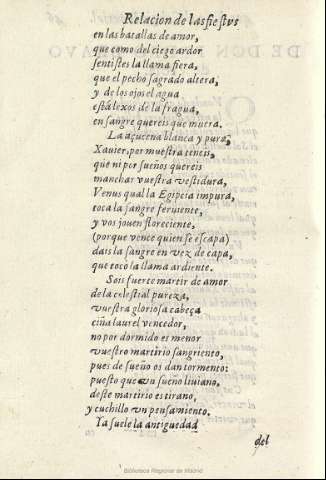 Relacion de las fiestvs
en las batallas de amor,
que como del ciego ardor
sentistes la llama fiera,
que el pecho sagrado altera,
y de los ojos el agua
està lexos de la fragua,
en sangre quereis que muera.
La açucena blanca y pura,
Xauier, por muestra teneis,
que ni por sueños quereis
manchar vuestra vestidura,
Venus qual la Egipcia impura,
toca la sangre feruiente,
y vos jouen floreciente,
(porque vence quien se escapa)
dais la sangre en vez de capa,
que tocò la llama ardiente.
Sois fuerte martir de amor
de la celestial pureza,
vuestra gloriosa cabeça
ciña laurel vencedor,
no por dormido es menor
vuestro martirio sangriento,
pues de sueño os dan tormento:
puesto que vn sueno liuiano,
deste martirio es tirano,
y cuchillo vn pensamiento.
Ya suele la antiguedad
del
Biblioteca Regional de Madrid